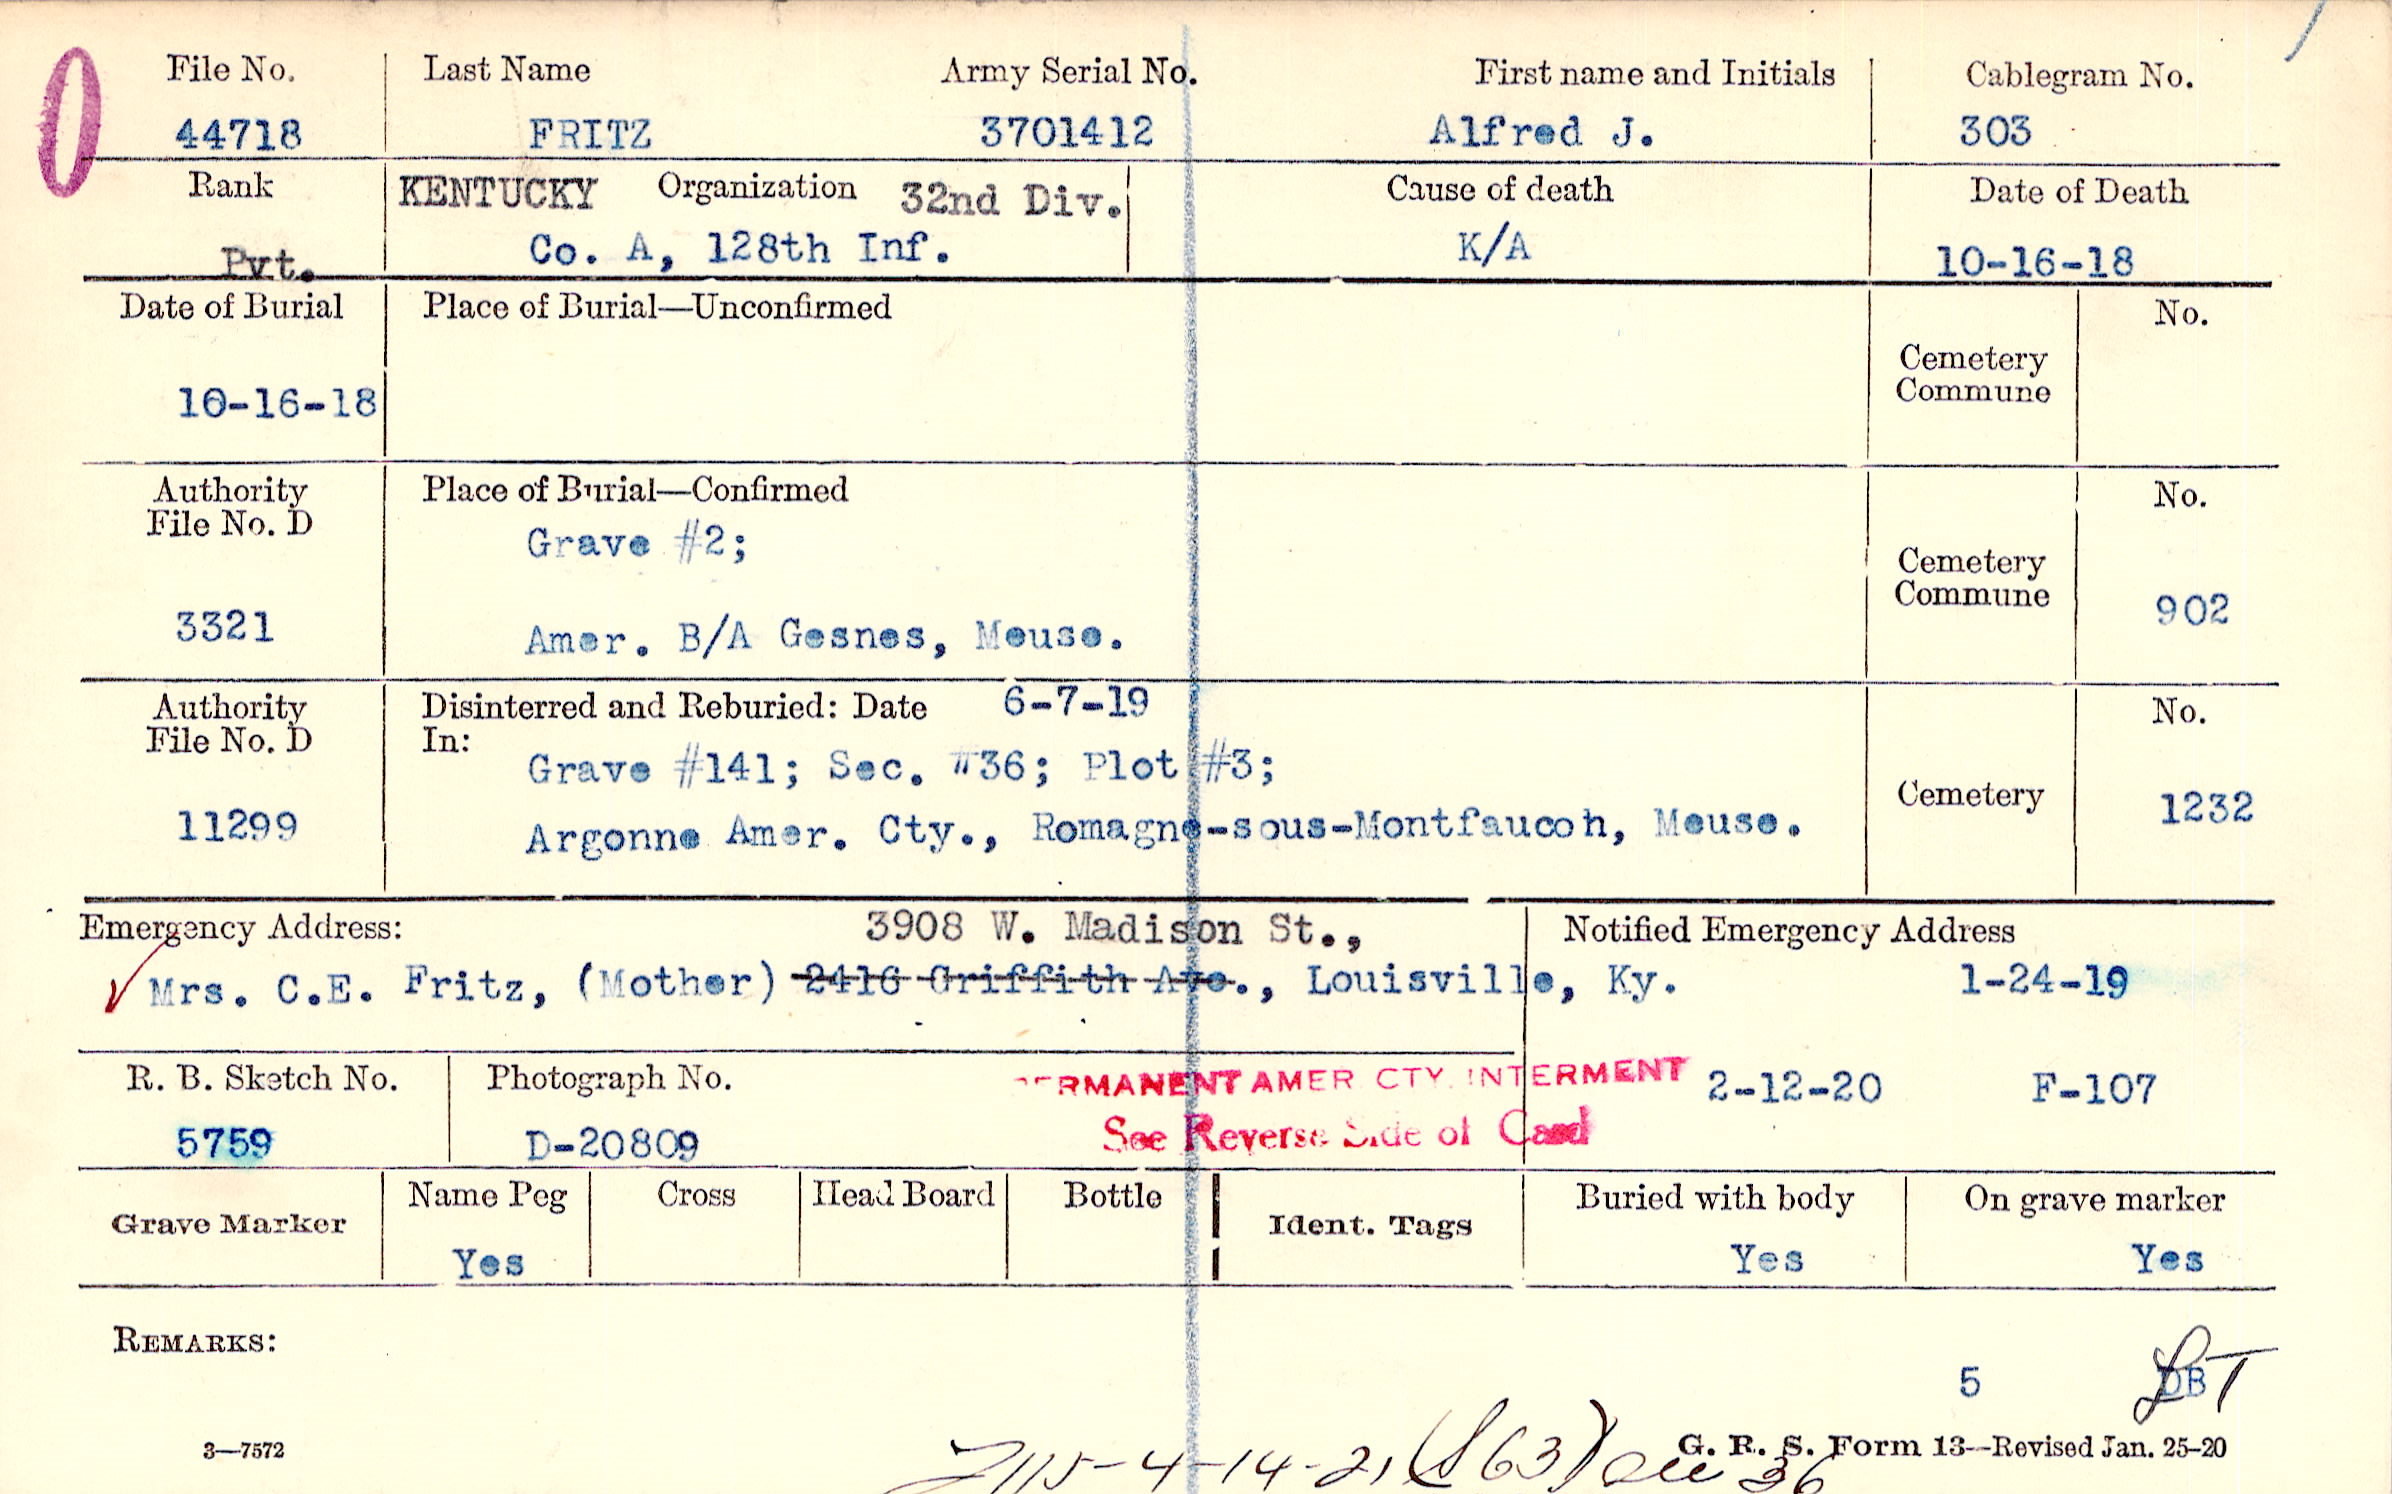 File No. Last Name Army Serial No. First name and Initials Cablegram No.
44718 FRITZ 3701412 Alfred J. 303
Rank KENTUCKY Organization 32nd Div. Cause of death Date of Death
Pvt. Co. A, 128th Inf. K/A 10-16-18
Date of Burial Place of Burial—Unconfirmed No.
Cemetery
Commune
10-16-18
Authority Place of Burial—Confirmed No.
File No. D
Grave #2;
Cemetery
Commune
3321 Amer. B/A Gesnes, Meuse. 902
Authority Disinterred and Reburied: Date 6-7-19 No.
File No. D In:
Grave #141; Sec. #36; Plot #3;
Cemetery
11299 Argonne Amer. Cty., Romagne-sous-Montfaucoh, Meuse. 1232
Emergency Address: 3908 W. Madison St., Notified Emergency Address
Mrs. C.E. Fritz, (Mother) 2416 Griffith Ave., Louisville, Ky. 1-24-19
R. B. Sketch No. Photograph No. PERMANENT AMER CTY. INTERMENT 2-12-20 F-107
5759 D-20809 See Reverse Side of Card
Grave Marker Name Peg Cross Head Board Bottle Ident. Tags Buried with body On grave marker
Yes Yes Yes
REMARKS:
5 DB
3—7572 G. R. S. Form 13—Revised Jan. 25-20
4-14-21 (S63) 36